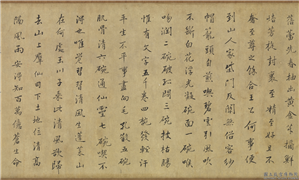 蓓蕾先春抽出黃金芽摘鮮
焙芳旋封裹至精至好且不
奢至尊之餘合王公何事便
到山人家柴門反關無俗客紗
帽籠頭自煎喫碧雲引風吹
不斷白花浮光凝碗面一碗喉
吻潤二碗破孤悶三碗搜枯腸
惟有文字五千卷四碗發輕汗
平生不平事盡向毛孔散五碗
肌骨清六碗通仙靈七碗喫不
得也唯覺習習清風生蓬萊山
在何處玉川子乘此清風欲歸
去山上群仙司下土地位清高
隔風雨安得知百萬億蒼生命